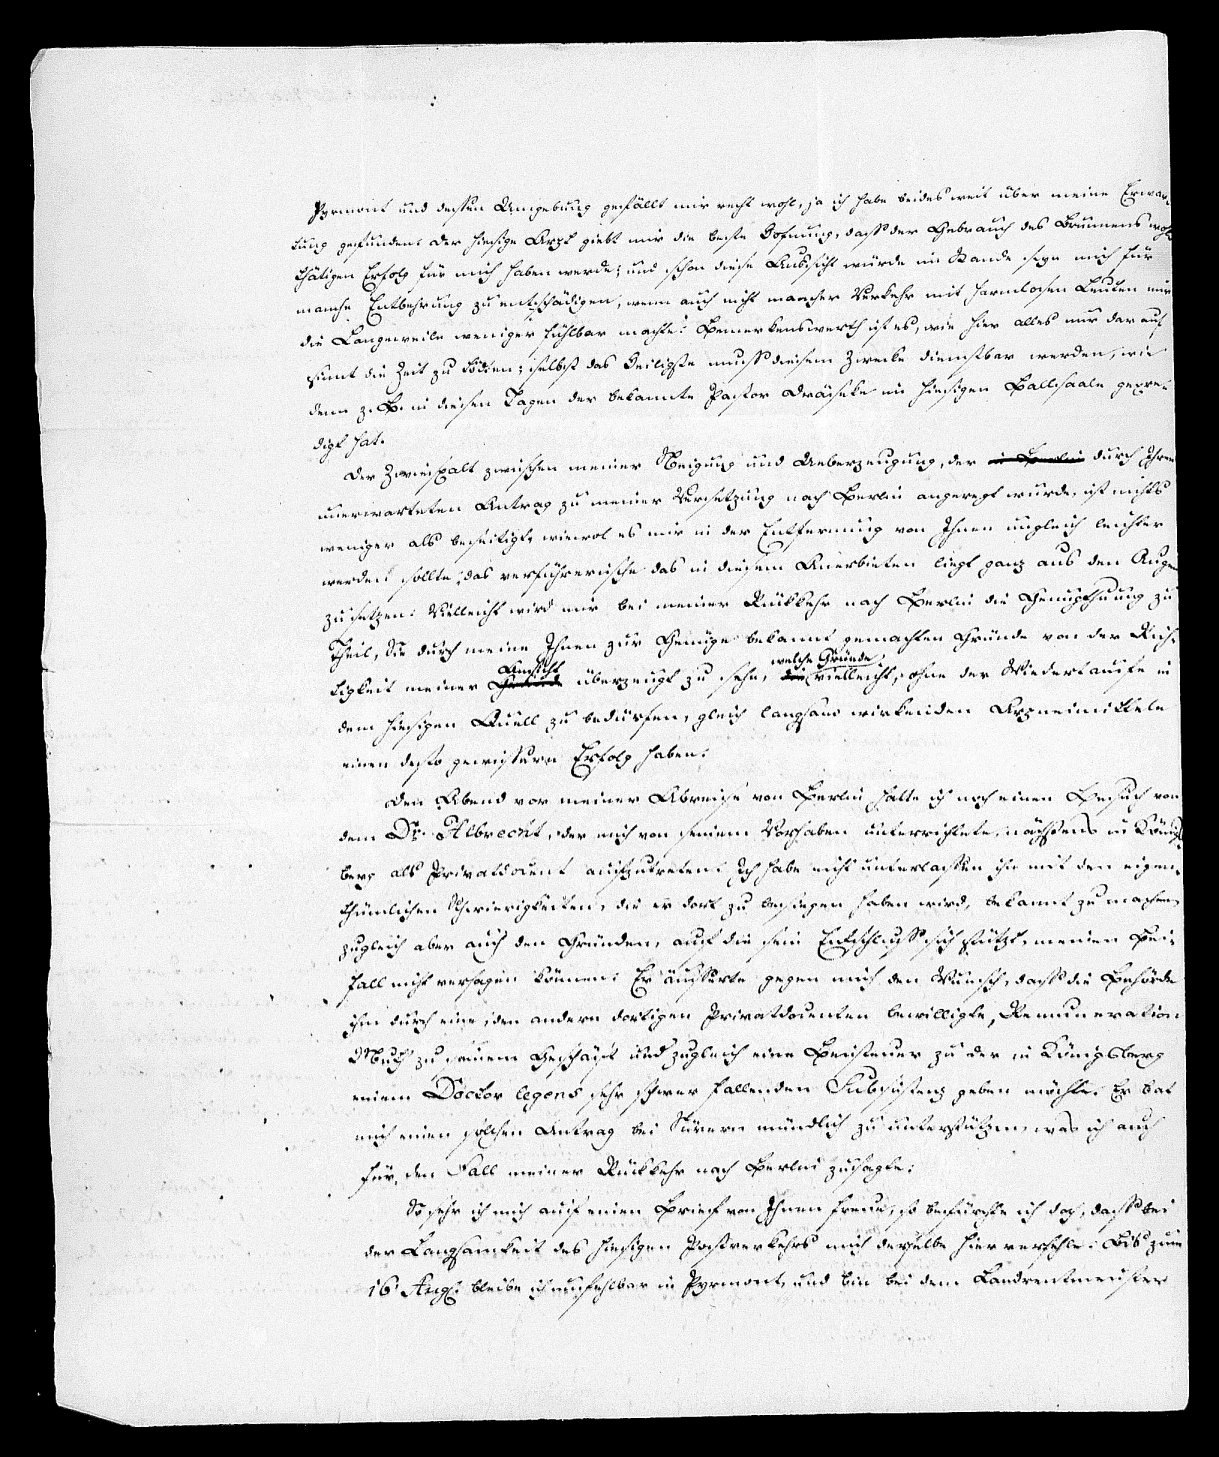 Pyrmont und dessen Umgebung gefällt mir recht wohl, ja ich habe beides weit über meine Erwar-
tung gefunden. Der hiesige Arzt giebt mir die beste Hofnung, dass der Gebrauch des Brunnens wohl-
thätigen Erfolg für mich haben werde; und schon diese Aussicht würde im Stande seyn mich für
manche Entbehrung zu entschädigen, wenn auch nicht mancher Verkehr mit harmlosen Leuten mir
die Langeweile weniger fühlbar machte. Bemerkenswerth ist es, wie hier alles nur darauf
sinnt die Zeit zu tödten; selbst das Heiligste muss diesem Zwecke dienstbar werden, wie
denn z. B. in diesen Tagen der bekannte Pastor Dräseke im hiesigen Ballsaale gepre-
digt hat.
Der Zwiespalt zwischen meiner Neigung und Ueberzeugung, der durch Ihren
unerwarteten Antrag zu meiner Versetzung nach Berlin angeregt wurde, ist nichts
weniger als beseitigt, wiewol es mir in der Entfernung von Ihnen ungleich leichter
werden sollte, das verführerische das in diesem Anerbieten liegt ganz aus den Augen
zu setzen. Vielleicht wird mir bei meiner Rükkehr nach Berlin die Genugthuung zu
Theil, Sie durch meine Ihnen zur Genüge bekannt gemachten Gründe von der Rich-
tigkeit meiner Ansicht überzeugt zu sehn, welche Gründe vielleicht, ohne der Wiedertaufe in
dem hiesigen Quell zu bedürfen, gleich langsam wirkenden Arzneimitteln
einen desto gewissern Erfolg haben.
Den Abend vor meiner Abreise von Berlin hatte ich noch einen Besuch von
dem Dr. Albrecht, der mich von seinem Vorhaben unterrichtete, nächstens in Königs-
berg als Privatdocent aufzutreten. Ich habe nicht unterlassen ihn mit den eigen-
thümlichen Schwierigkeiten, die er dort zu besiegen haben wird, bekannt zu machen,
zugleich aber auch den Gründen, auf die sein Entschluss sich stützt, meinen Bei-
fall nicht versagen können. Er äusserte gegen mich den Wunsch, dass die Behörde
ihm durch eine, den andern dortigen Privatdocenten bewilligte, Remuneration
Muth zu seinem Geschäft und zugleich eine Beisteuer zu der in Königsberg
einem Doctor legens sehr schwer fallenden Subsistenz geben möchte. Er bat
mich einen solchen Antrag bei Süvern mündlich zu unterstützen, was ich auch
für den Fall meiner Rükkehr nach Berlin zusagte.
So sehr ich mich auf einen Brief von Ihnen freue, so befürchte ich doch, dass bei
der Langsamkeit des hiesigen Postverkehrs mich derselbe hier verfehle. Bis zum
16 Aug. bleibe ich unfehlbar in Pyrmont, und bin bei dem Landrentmeister